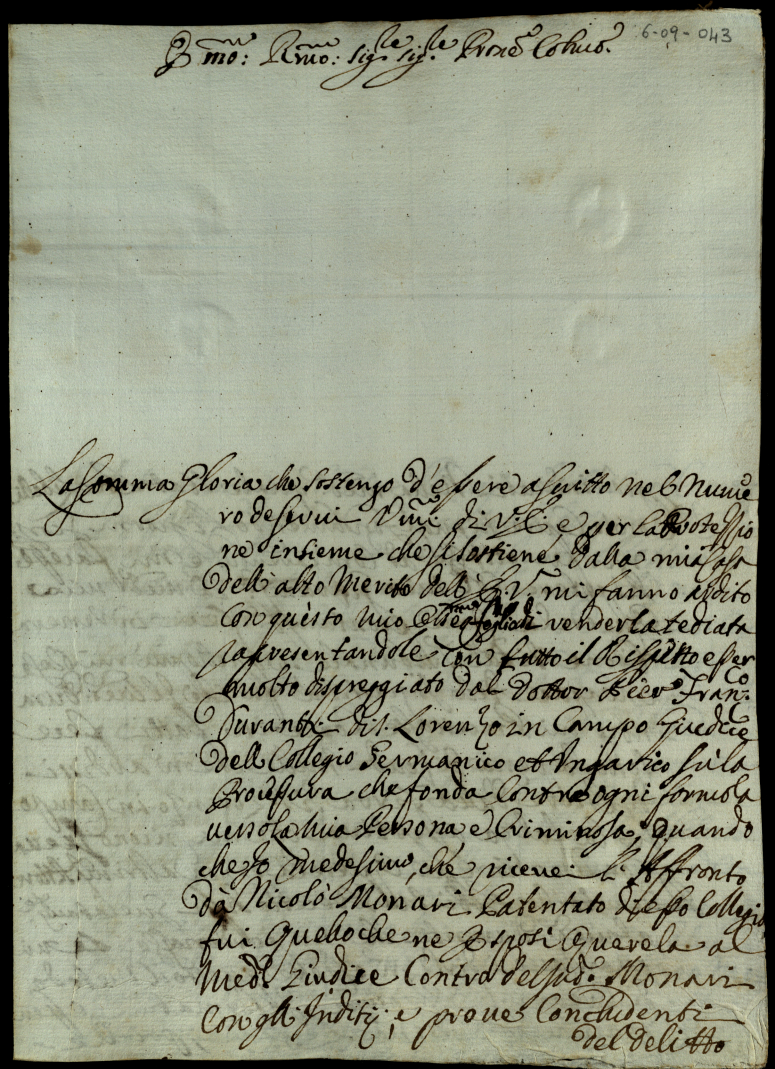 6-09-043
Jll.mo: R.mo: Sig.re Sig.re Prone Colmo.
La Somma Gloria che sostengo d'essere ascritto nel Nume
ro de servi di V. E. e per la Protessio
ne insieme che si sostiene dalla mia Casa
dell'alto Merito dell' E. V. mi fanno ardito
con questo mio di renderla tediata
rapresentandole con tutto il Rispetto esser
molto dispreggiato dal Dottor Pier Fran.co
Duranti di S. Lorenzo in Campo Giudice
dell Collegio Germanico et Ungarico sù la
Processura che fonda contro ogni formola
verso la mia Persona è Criminosa, quando
che Jo medesimo, che ricevei l'Affronto
dà Nicolò Monari Patentato di esso Collegio
fui quello che ne Esposi Querela al
Med.o Giudice Contro del sud.o Monari
con gli Inditij, e prove Concludenti
del delitto